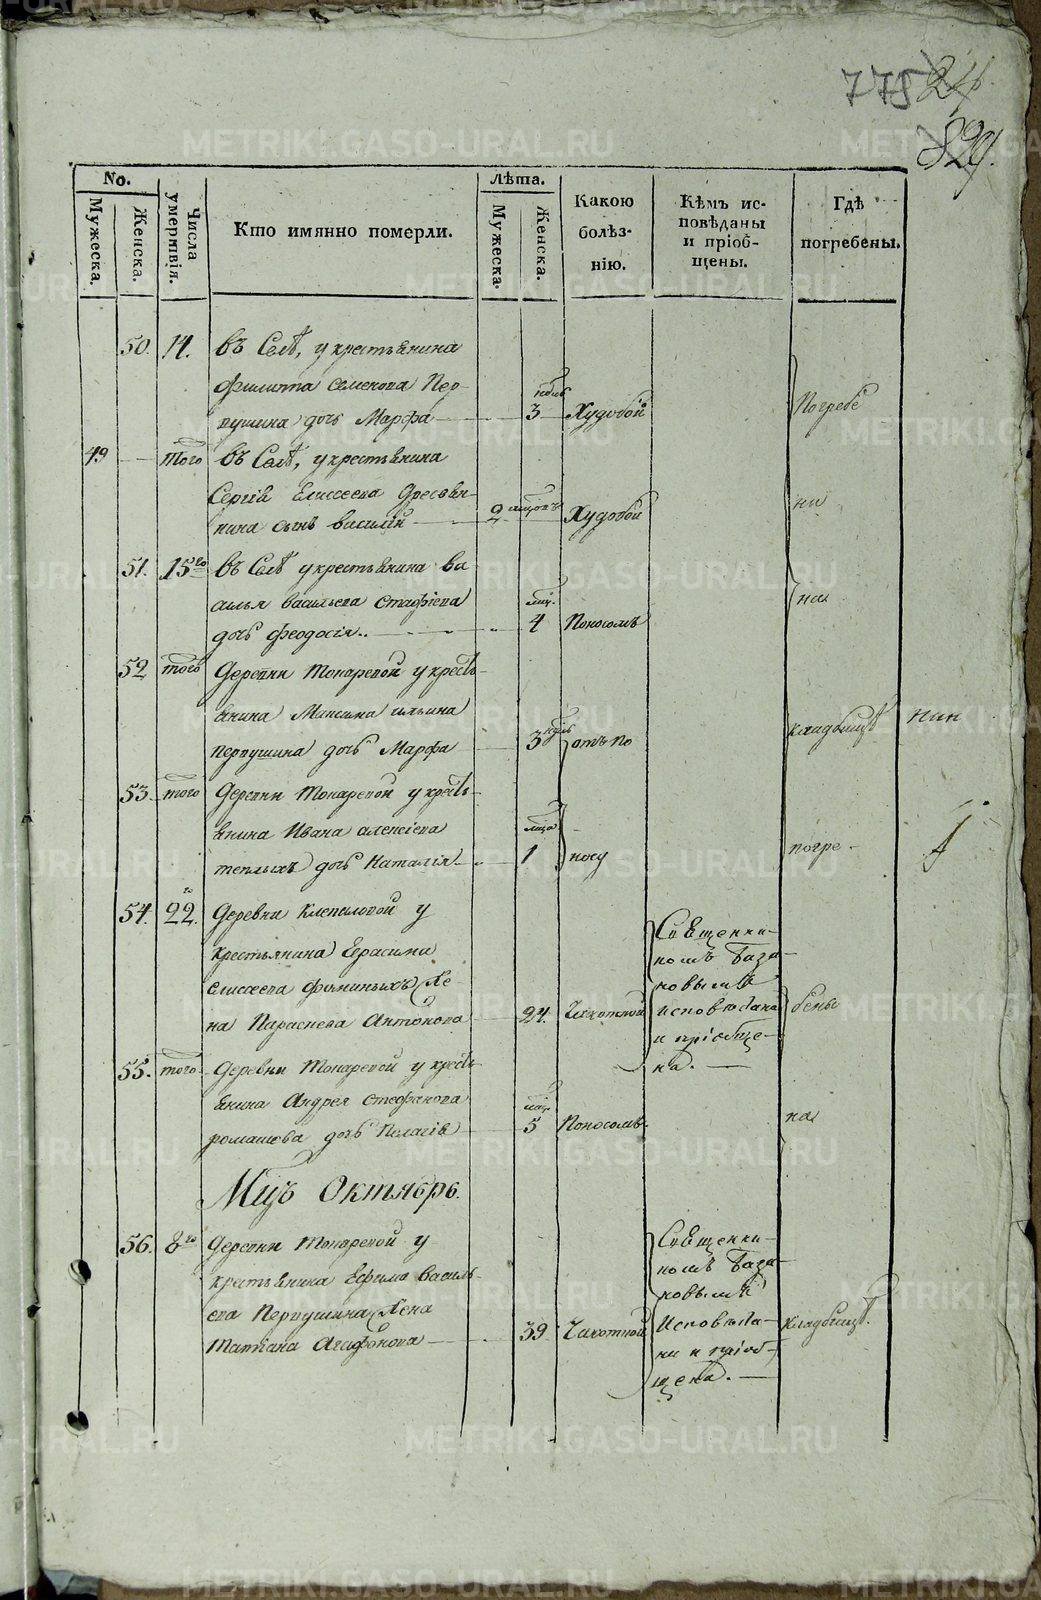 775 24
829.
No.
Лѣта.
Мужеска.
Женска.
Числа умертвія.
Кто имянно померли.
Мужеска.
Женска.
Какою болѣз-нію.
Кѣмъ ис-повѣданы и пріоб-щены.
Гдѣ погребены.
50. 14. въ Селѣ, у крестьянина
Филиппа Семенова Пер-
пушина дочь Марфа 3 нѣль Худобой Погребе
49 того въ Селѣ, у крестьянина
Сергія Елисеева
сынъ Василій 2 Худобой ни
51. 15го въ Селѣ у крестьянина Ва
силья Васильева Стафіева
дочь Феодосія.. 4 мц. Поносомъ на
52 того Деревни Токаревой у кресть-
янина Максима Ильина
Перпушина дочь Марфа 3 нѣль отъ по кладбищѣ
53 того Деревни Токаревой у кресть-
янина Ивана Алексіева
Теплыхъ дочь Наталія 1 мца носу погре-
54. 22го Деревни Клепаловой у
крестьянина Герасима
Елисеева Фоминыхъ Же
на Параскева Антонова 24. Чахоткой
Священни-
комъ База-
новымъ
исповѣдана
и пріобще-
на.
бены
55. того Деревни Токаревой у кресть-
янина Андрея Стефанова
Ромашова дочь Пелагія 5 мц. Поносомъ. на
Мцъ Октябрь.
56. 8го Деревни Токаревой у
крестьянина Ефима Василь-
ева Перпушина Жена
Татіана Агафонова 39 Чахоткой
Священни-
комъ База-
новымъ
Исповѣда-
на и пріоб-
щена.
кладбищѣ.